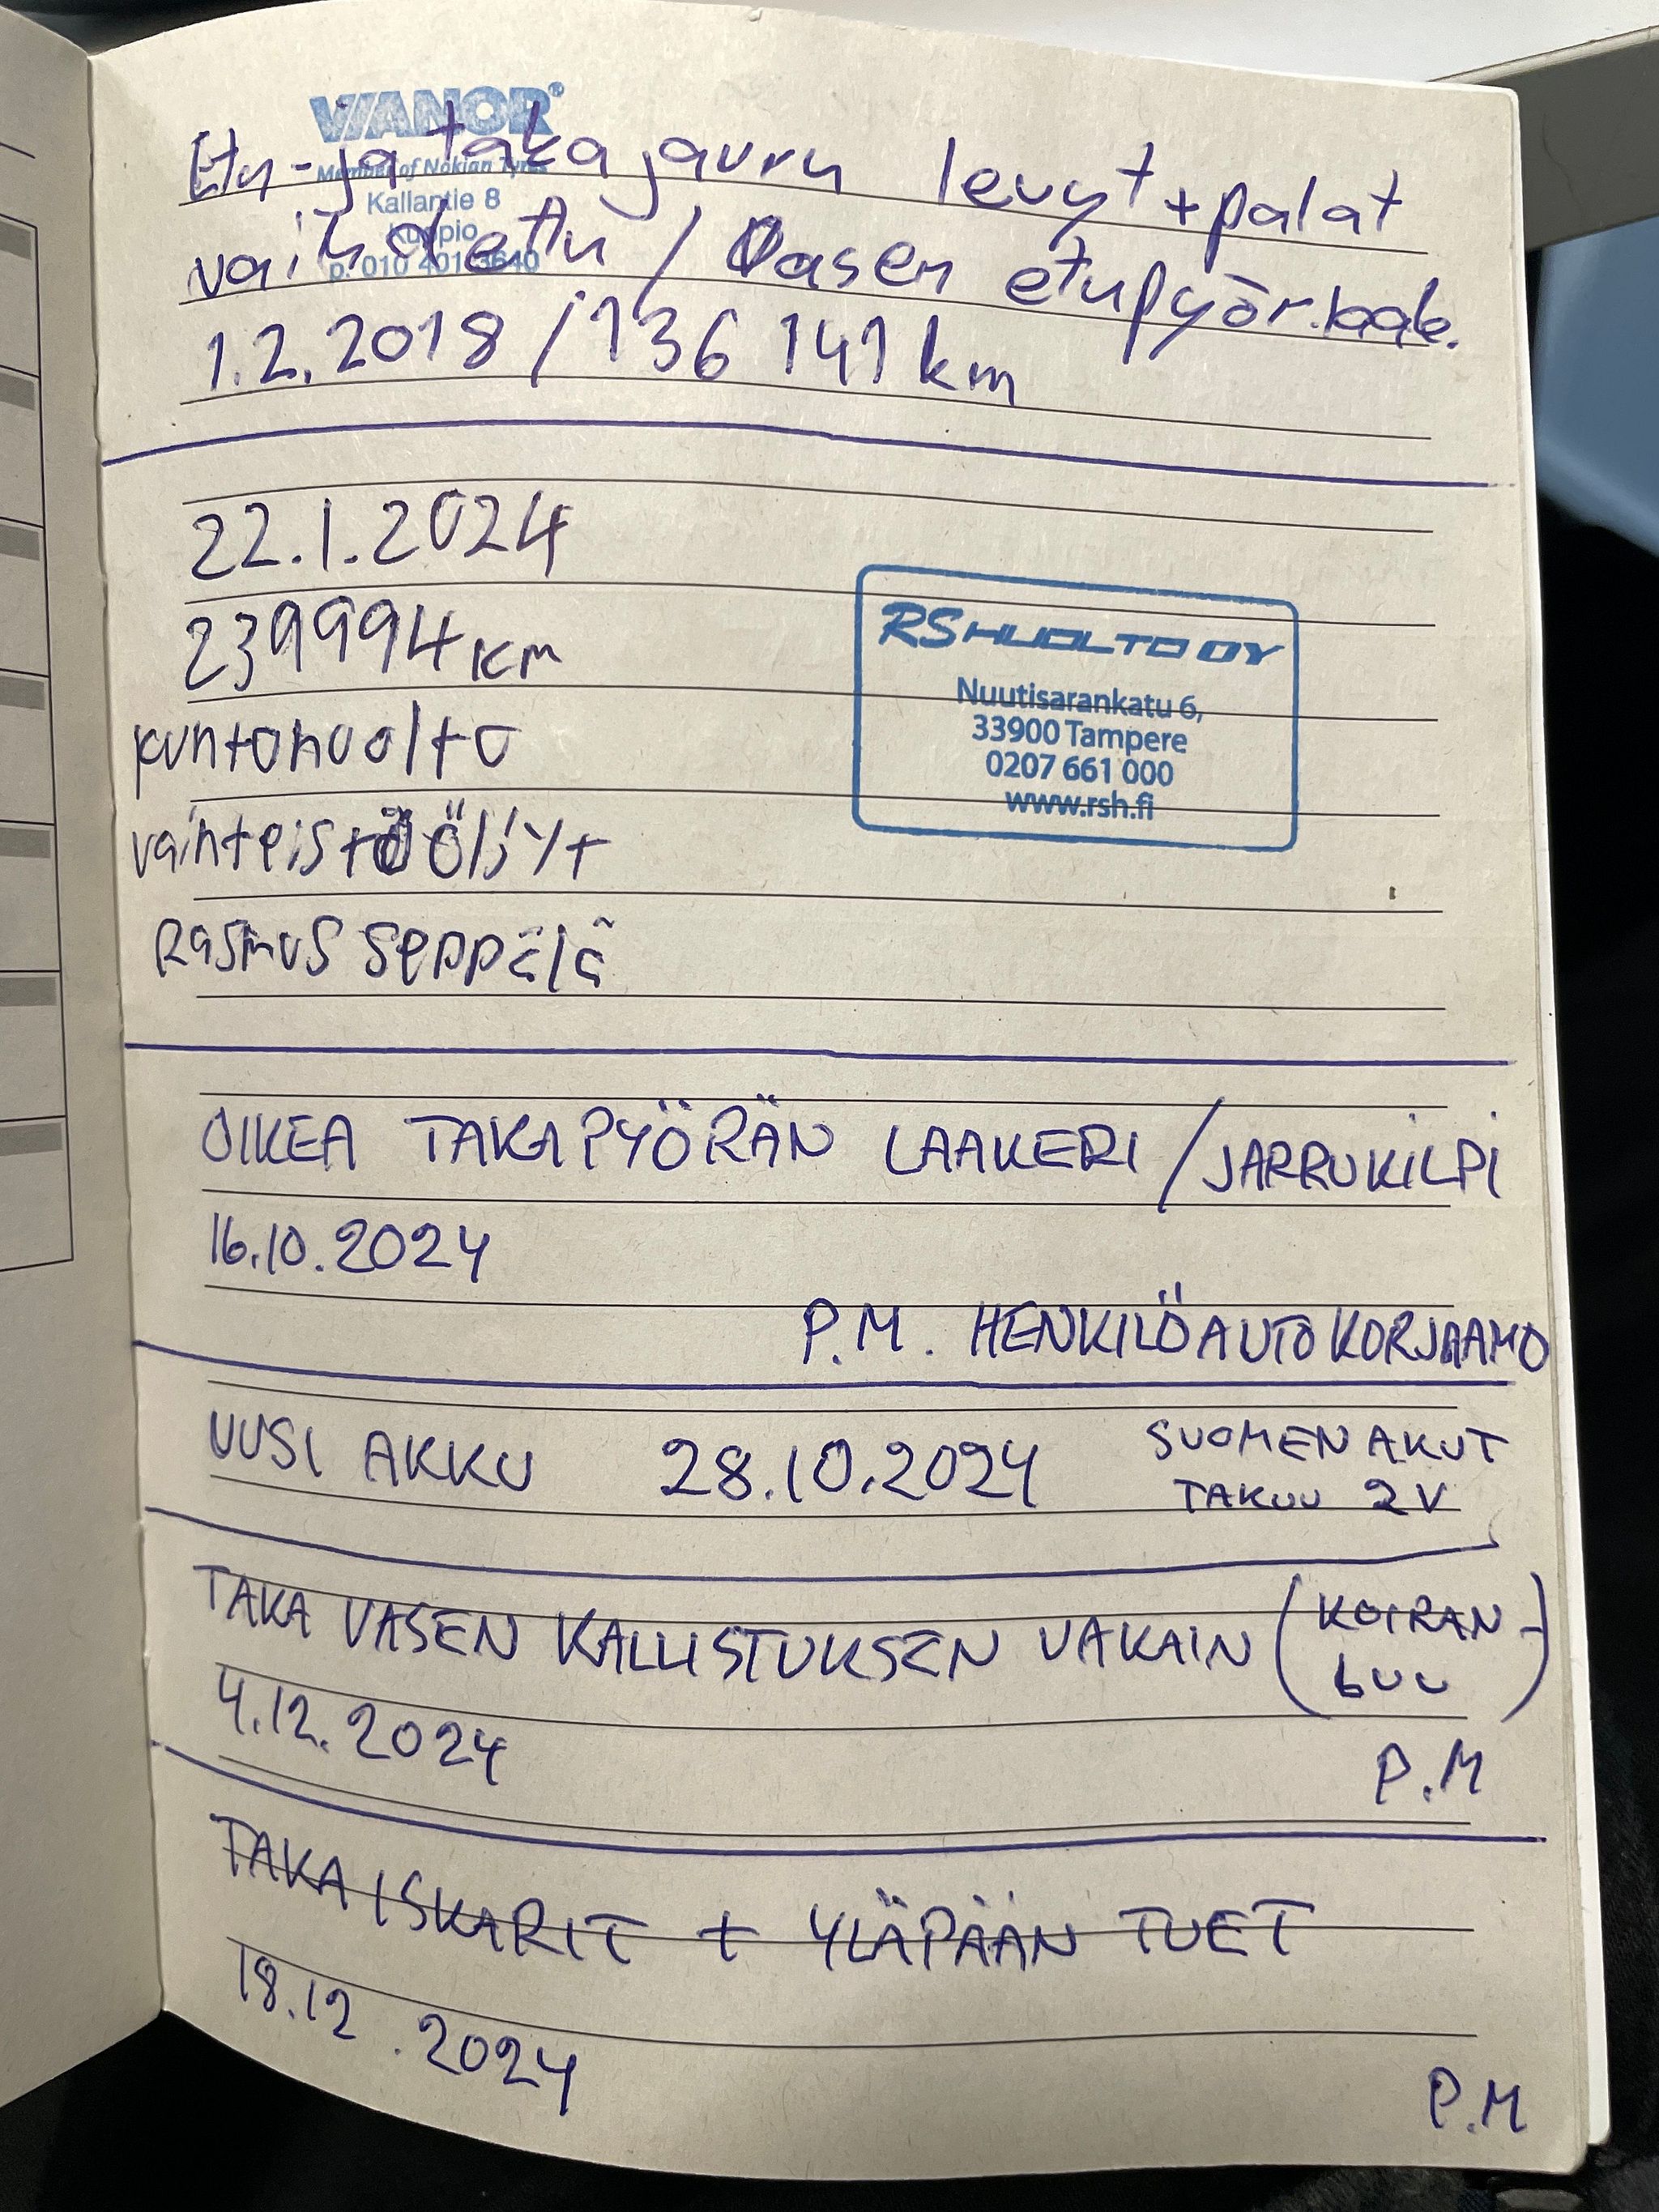 VIANOR®
Member of Nokian Tyres
Kallantie 8
Kuopio
p. 010 401 3640
Etu- ja taka jarru levyt + palat
vaihdettu / Vasen etupyör.laak.
1.2.2018 / 136 141 km
22.1.2024
239994 km
kuntohuolto
vaihteistöölj'yt
Rasmus Seppälä
RS HUOLTO OY
Nuutisarankatu 6,
33900 Tampere
0207 661 000
www.rsh.fi
OIKEA TAKAPYÖRÄN LAAKERI / JARRUKILPI
16.10.2024
P.M. HENKILÖAUTOKORJAAMO
UUSI AKKU 28.10.2024
SUOMEN AKUT
TAKUU 2V
TAKA VASEN KALLISTUKSEN VAKAIN (KOIRAN-
LUU)
4.12.2024
P.M
TAKAISKARIT + YLÄPÄÄN TUET
18.12.2024
P.M